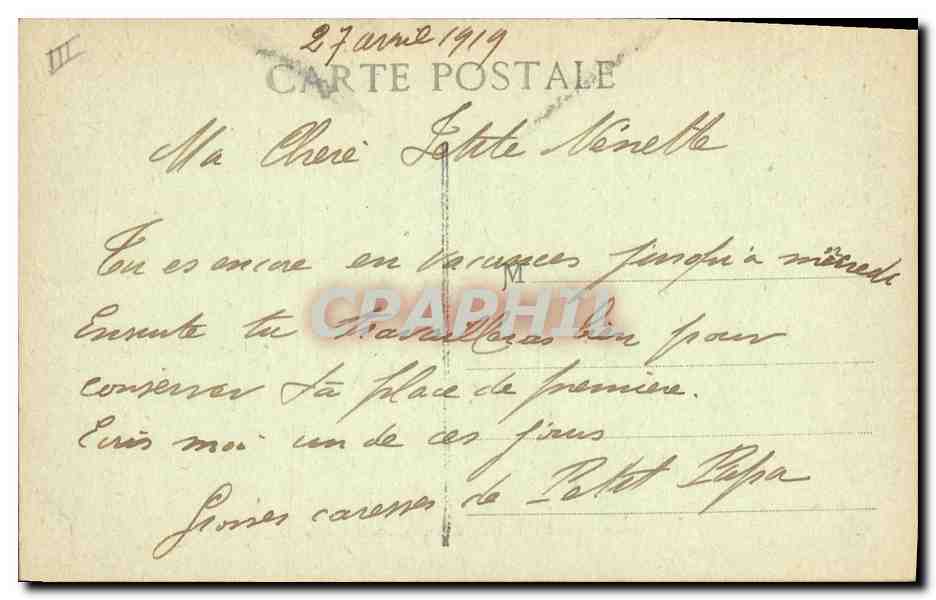 III
27 avril 1919
CARTE POSTALE
Ma Cheré Petite Nénette
Tu es encore en vacances jusqu'à mercredi
M
CPAPHIL
Ensuite tu travailleras bien pour
conserver ta place de première.
Ecris moi un de ces jours
Grosses caresses de Petit Papa